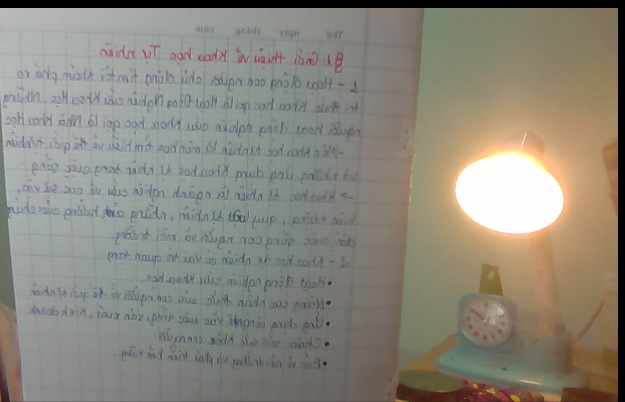 Thứ ngày tháng năm
Bài 1: Giới thiệu về Khoa học Tự nhiên
1 - Hoạt động con người chủ động tìm tòi, khám phá ra
tri thức khoa học gọi là Hoạt động Nghiên cứu khoa học. Những
người hoạt động nghiên cứu khoa học gọi là Nhà khoa học
- khoa học tự nhiên là về thế giới tự nhiên
và những ứng dụng khoa học tự nhiên trong cuộc sống
2 khoa học tự nhiên là ngành nghiên cứu về các sự vật,
hiện tượng, quy luật tự nhiên, những ảnh hưởng của chúng
đến cuộc sống con người và môi trường
3 - khoa học tự nhiên có vai trò quan trọng
• Hoạt động nghiên cứu khoa học
• Nâng cao nhận thức của con người về thế giới tự nhiên
• Ứng dụng công nghệ vào cuộc sống, sản xuất, kinh doanh
• Chăm sóc sức khỏe con người
• Bảo vệ môi trường và phát triển bền vững